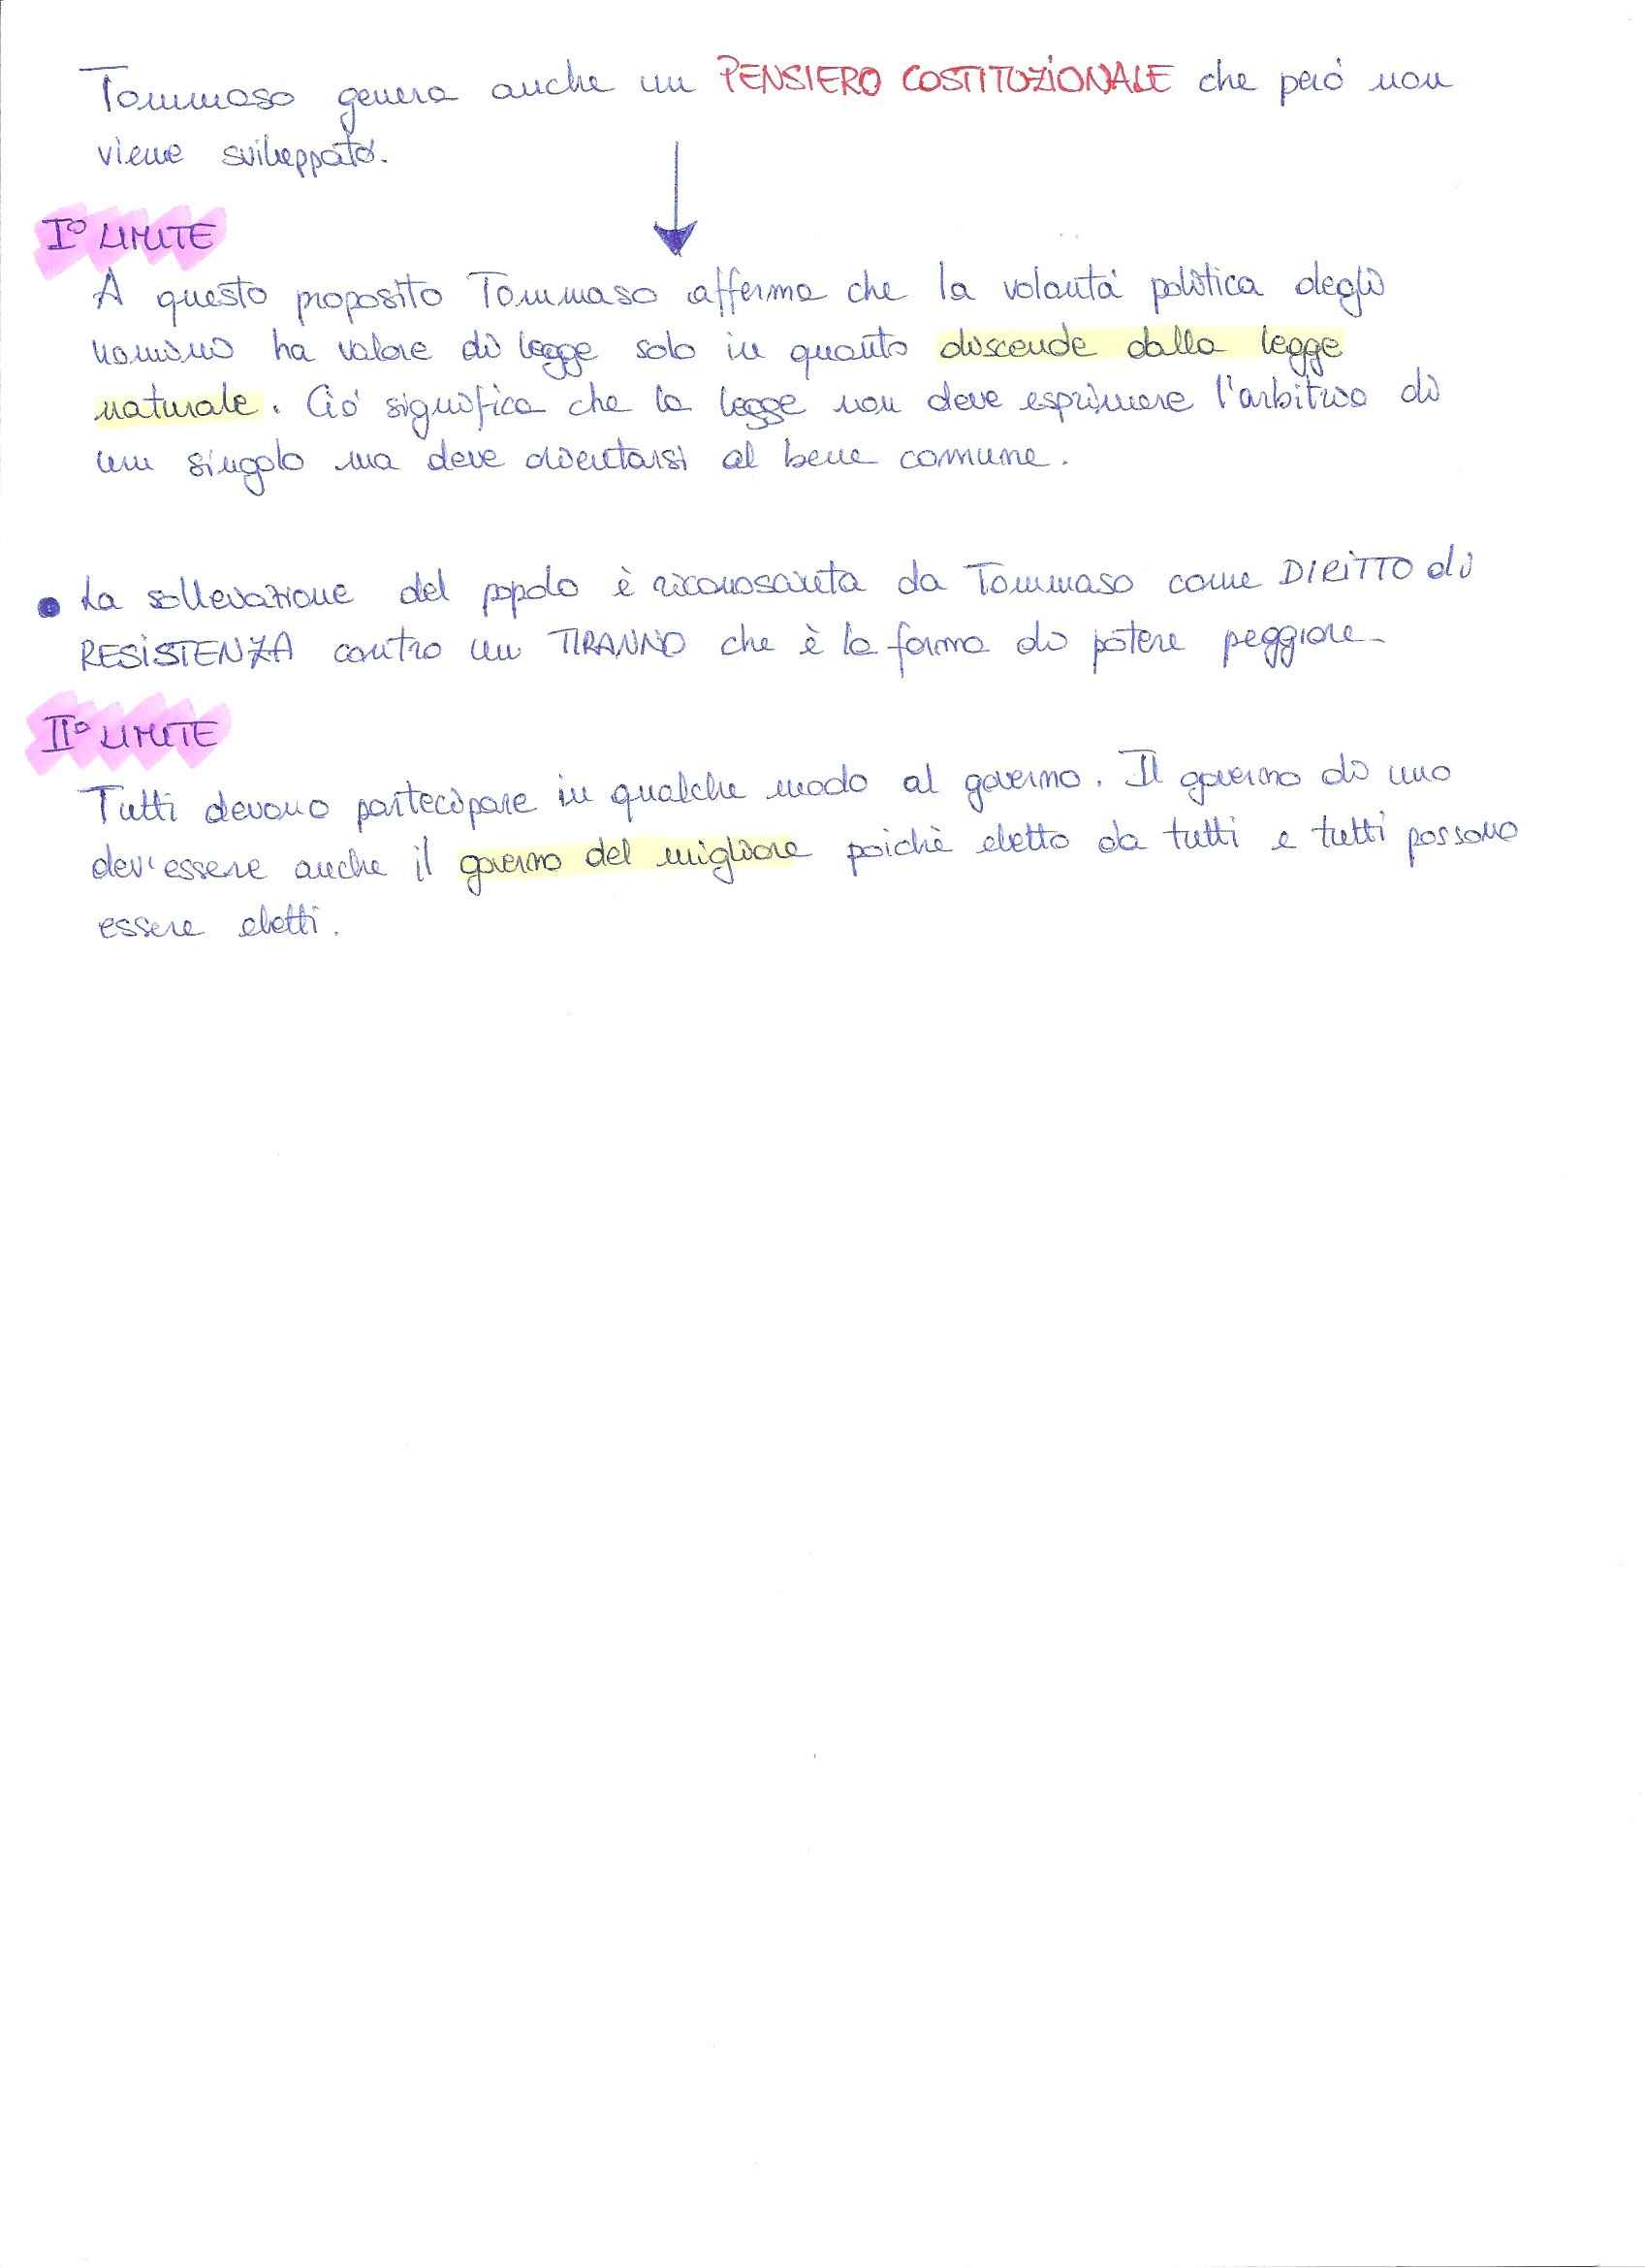 Tommaso genera anche un PENSIERO COSTITUZIONALE che peró non
viene sviluppato.
I° LIMITE
A questo proposito Tommaso afferma che la volontá politica degli
uomini ha valore di legge solo in quanto discende dalla legge
naturale. Ció significa che la legge non deve esprimere l'arbitrio di
un singolo ma deve orientarsi al bene comune.
• La sollevazione del popolo è riconosciuta da Tommaso come DIRITTO di
RESISTENZA contro un TIRANNO che è la forma di potere peggiore.
II° LIMITE
Tutti devono partecipare in qualche modo al governo. Il governo di uno
dev'essere anche il governo del migliore poichè eletto da tutti e tutti possono
essere eletti.